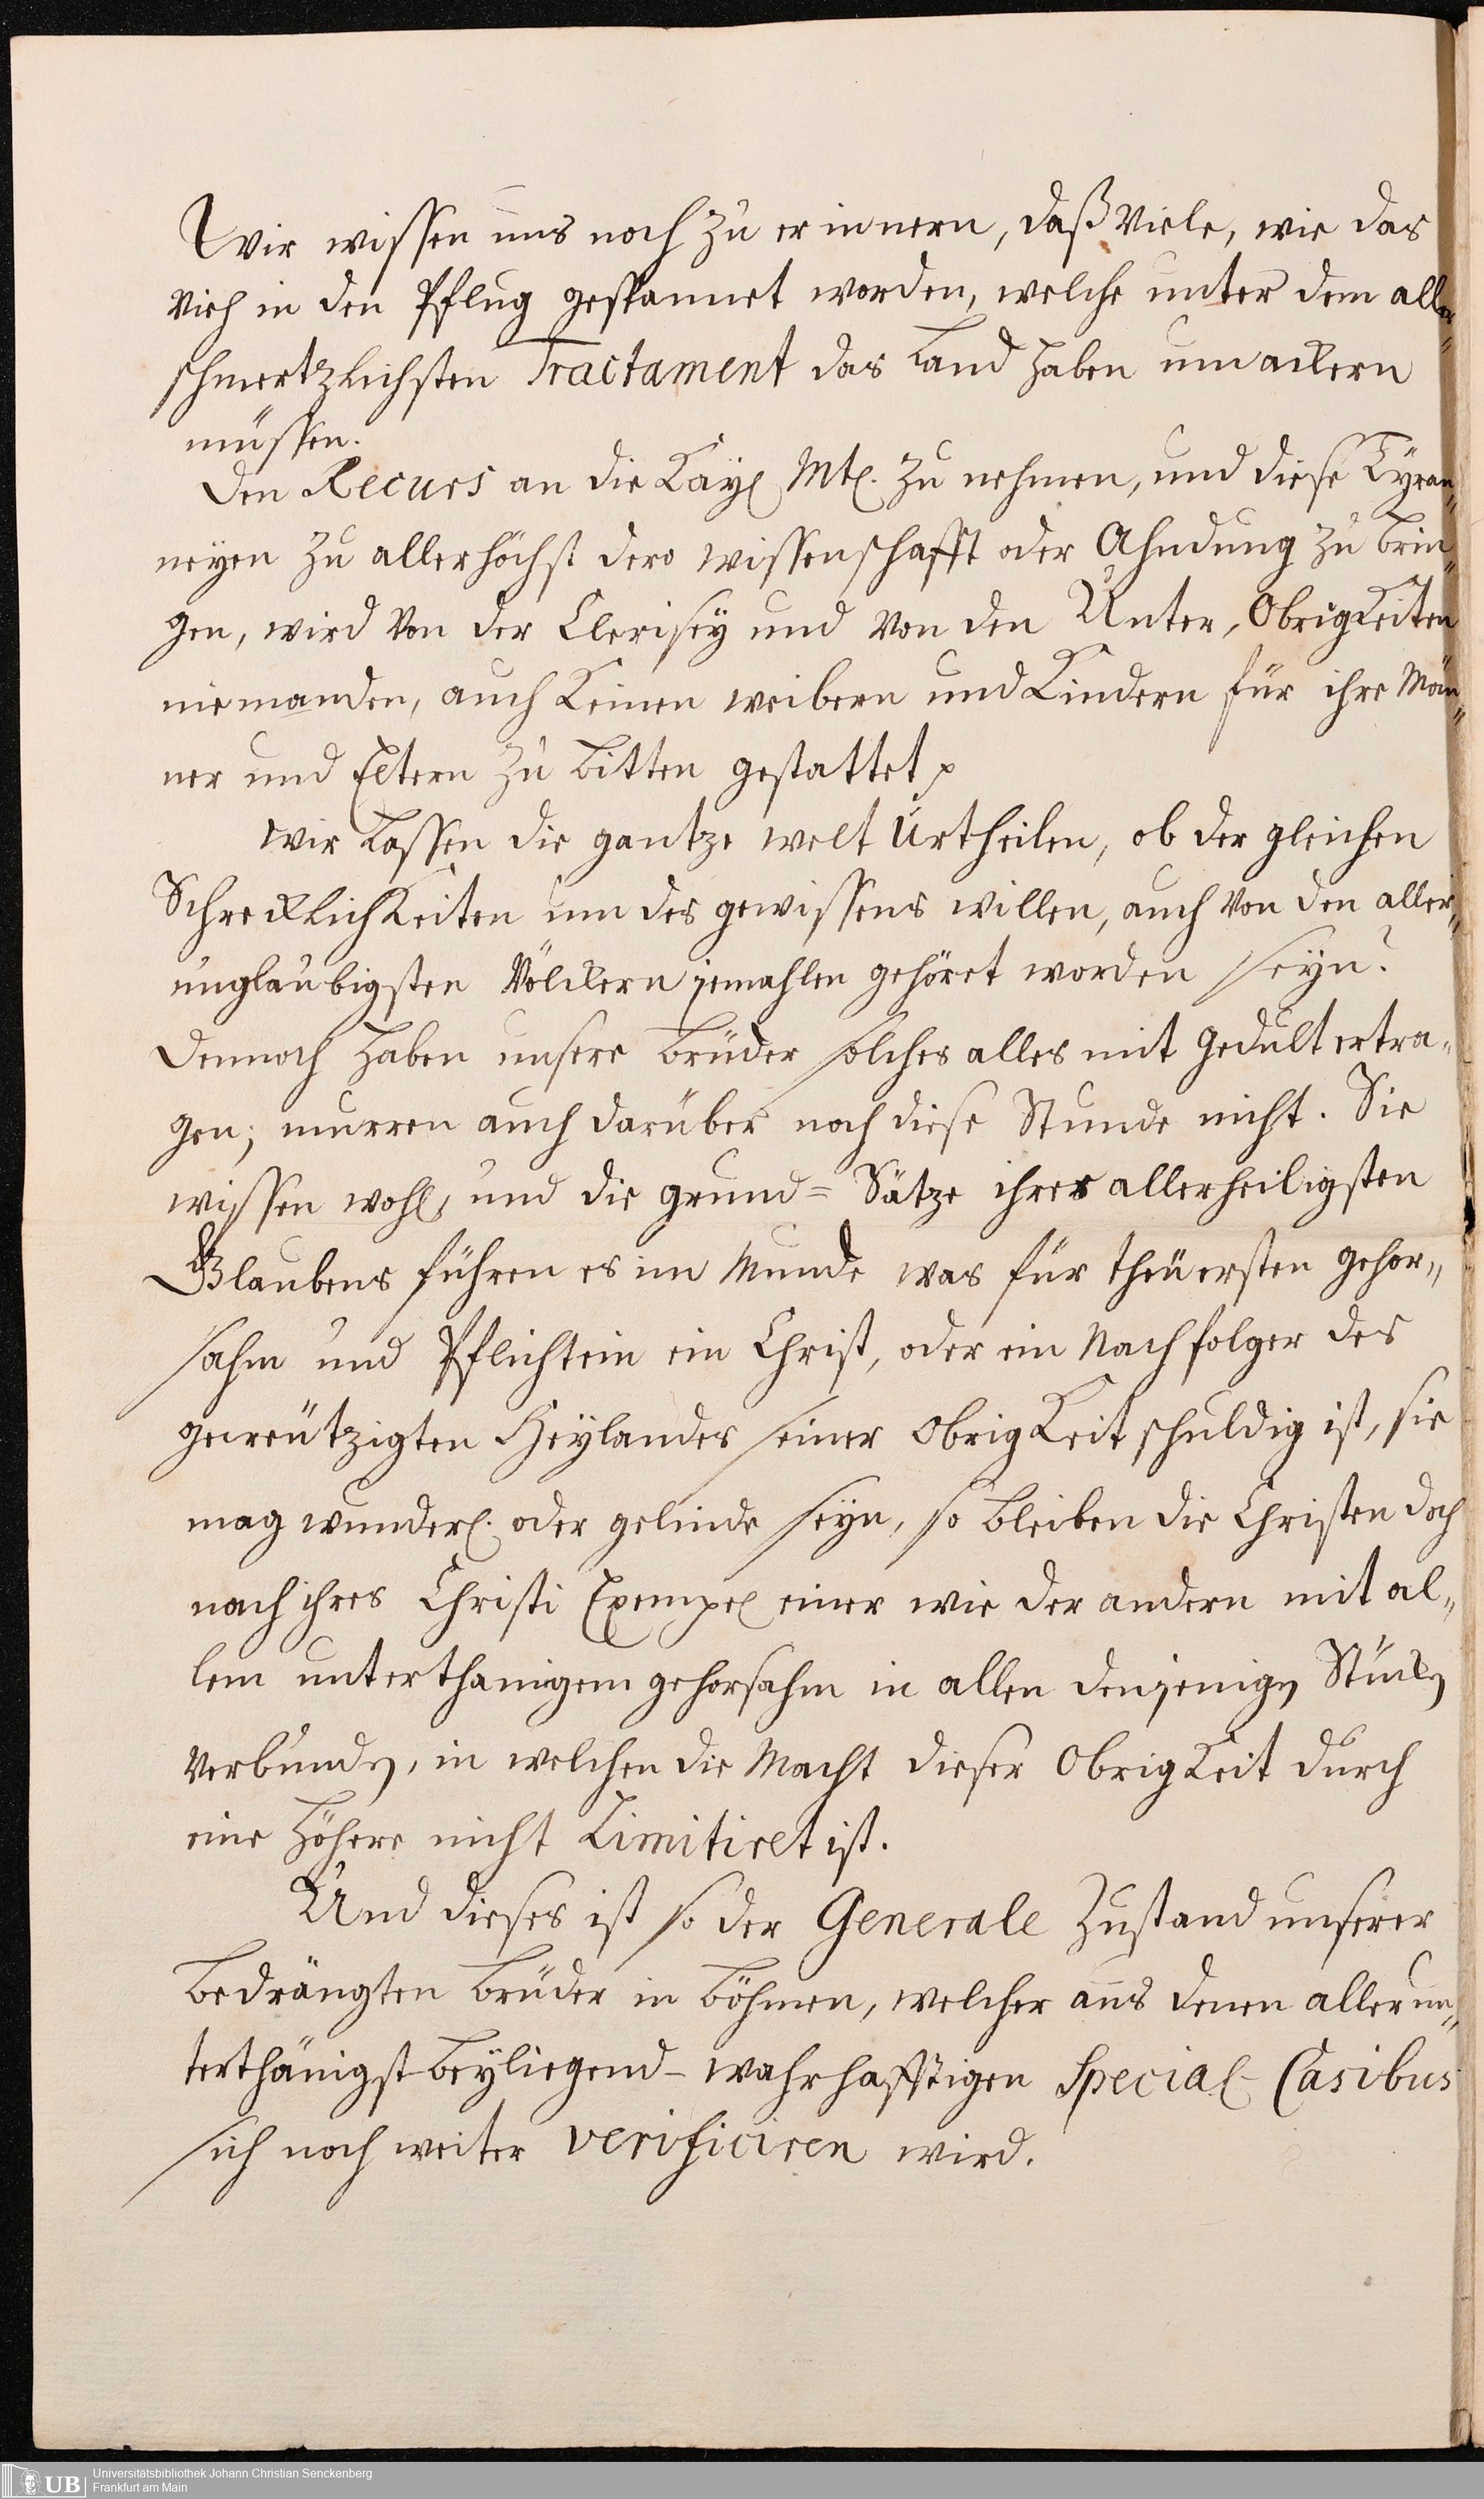 Wir wissen uns noch zu erinnern, daß Viele, wie das
Vieh in den Pflug gespannet worden, welche unter dem aller
schmertzlichsten Tractament das Land haben umackern
müssen.
Den Recurs an die Kayl Mtl. zu nehmen, und diese Tyran„
neyen zu allerhöchst dero wissenschafft oder Ahndung zu brin„
gen, wird Von der Clerisey und Von den Unter„Obrigkeiten
niemanden, auch Keinen weibern und Kindern für ihre Män„
ner und Eltern zu bitten gestattet
Wir Lassen die gantze welt Urtheilen, ob der gleichen
SchrecklichKeiten um des gewissens willen, auch Von den aller„
unglaubigsten Völckern jemahlen gehöret worden seyn?
Dennoch haben unsere brüder solches alles mit Gedult ertra„
gen; murren auch darüber noch diese Stunde nicht. Sie
wissen wohl, und die grund= Sätze ihres allerheiligsten
Glaubens führen es im Munde was für theuersten gehor„
sahm und Pflichten ein Christ, oder ein Nachfolger des
gecreützigten Heylandes seiner ObrigKeit schuldig ist, sie
mag wunderl. oder gelinde seyn, so bleiben die Christen doch
nach ihres Christi Exempel einer wie der andern mit al„
lem unterthanigem gehorsahm in allen denjenigen Stücken
Verbunden, in welchen die Macht dieser ObrigKeit durch
eine höhere nicht Limitiret ist.
Und dieses ist so der Generale Zustand unserer
bedrängten brüder in böhmen, welcher aus denen allerun„
terthänigst-beyliegend-wahrhafftigen Special-Casibus
sich noch weiter verificiren wird.
UB
Universitätsbibliothek Johann Christian Senckenberg
Frankfurt am Main